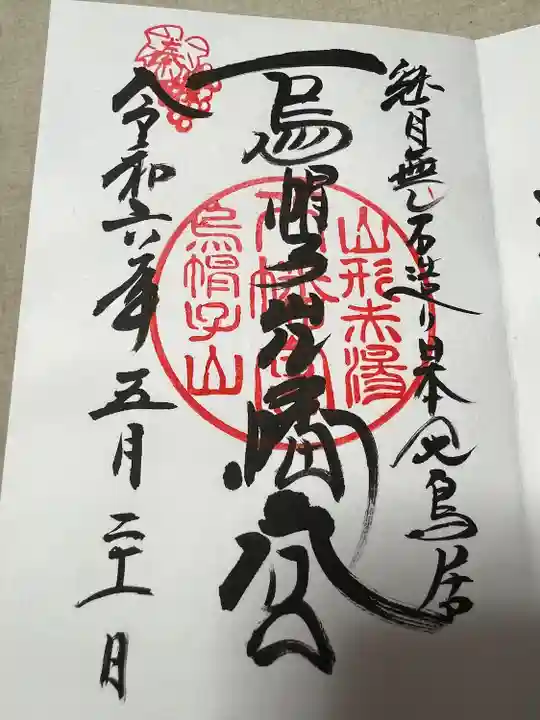 継目無し石造り日本一大鳥居
烏帽子山八幡宮
山形赤湯
八幡宮
烏帽子山
奉
令和六年五月二十一日